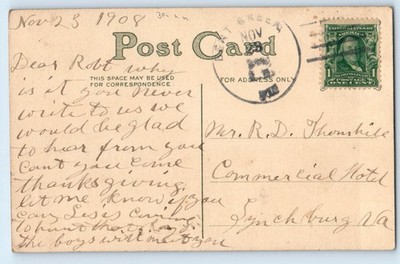 Nov 23 1908
Post Card
THIS SPACE MAY BE USED
FOR CORRESPONDENCE
FOR ADDRESS ONLY
NOV
Dear Robt why
is it you never
write to us we
would be glad
to hear from you
Cant you come
thanksgiving
let me know if you
can
to hunt
the boys will meet you
Mr. R. D. Thornhill
Commercial Hotel
Lynchburg Va